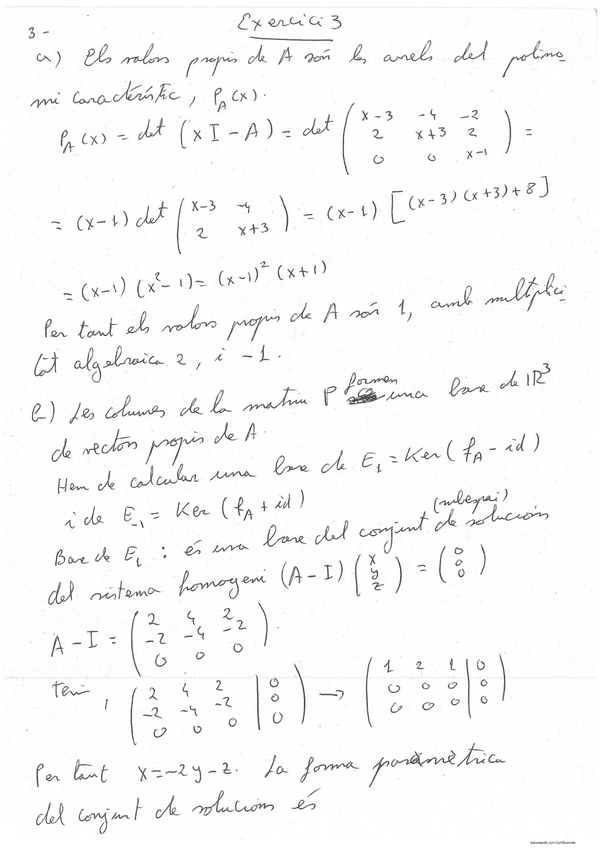 Exercici 3
3-
a) Els valors propis de A són les arrels del polino-
mi característic, P_A(x).
P_A(x) = det (xI - A) = det ( x-3 -4 -2 ; 2 x+3 2 ; 0 0 x-1 ) =
= (x-1) det ( x-3 -4 ; 2 x+3 ) = (x-1) [(x-3)(x+3)+8]
= (x-1) (x²-1) = (x-1)² (x+1)
Per tant els valors propis de A són 1, amb multiplici-
tat algebraica 2, i -1.
b) Les columnes de la matriu P formen una base de ℝ³
de vectors propis de A.
Hem de calcular una base de E₁ = Ker (f_A - id)
i de E₋₁ = Ker (f_A + id)
(subespai)
Base de E₁ : és una base del conjunt de solucions
del sistema homogeni (A-I) ( x ; y ; z ) = ( 0 ; 0 ; 0 )
A-I = ( 2 4 2 ; -2 -4 -2 ; 0 0 0 )
tenim, ( 2 4 2 | 0 ; -2 -4 -2 | 0 ; 0 0 0 | 0 ) → ( 1 2 1 | 0 ; 0 0 0 | 0 ; 0 0 0 | 0 )
Per tant x=-2y-z. La forma paramètrica
del conjunt de solucions és